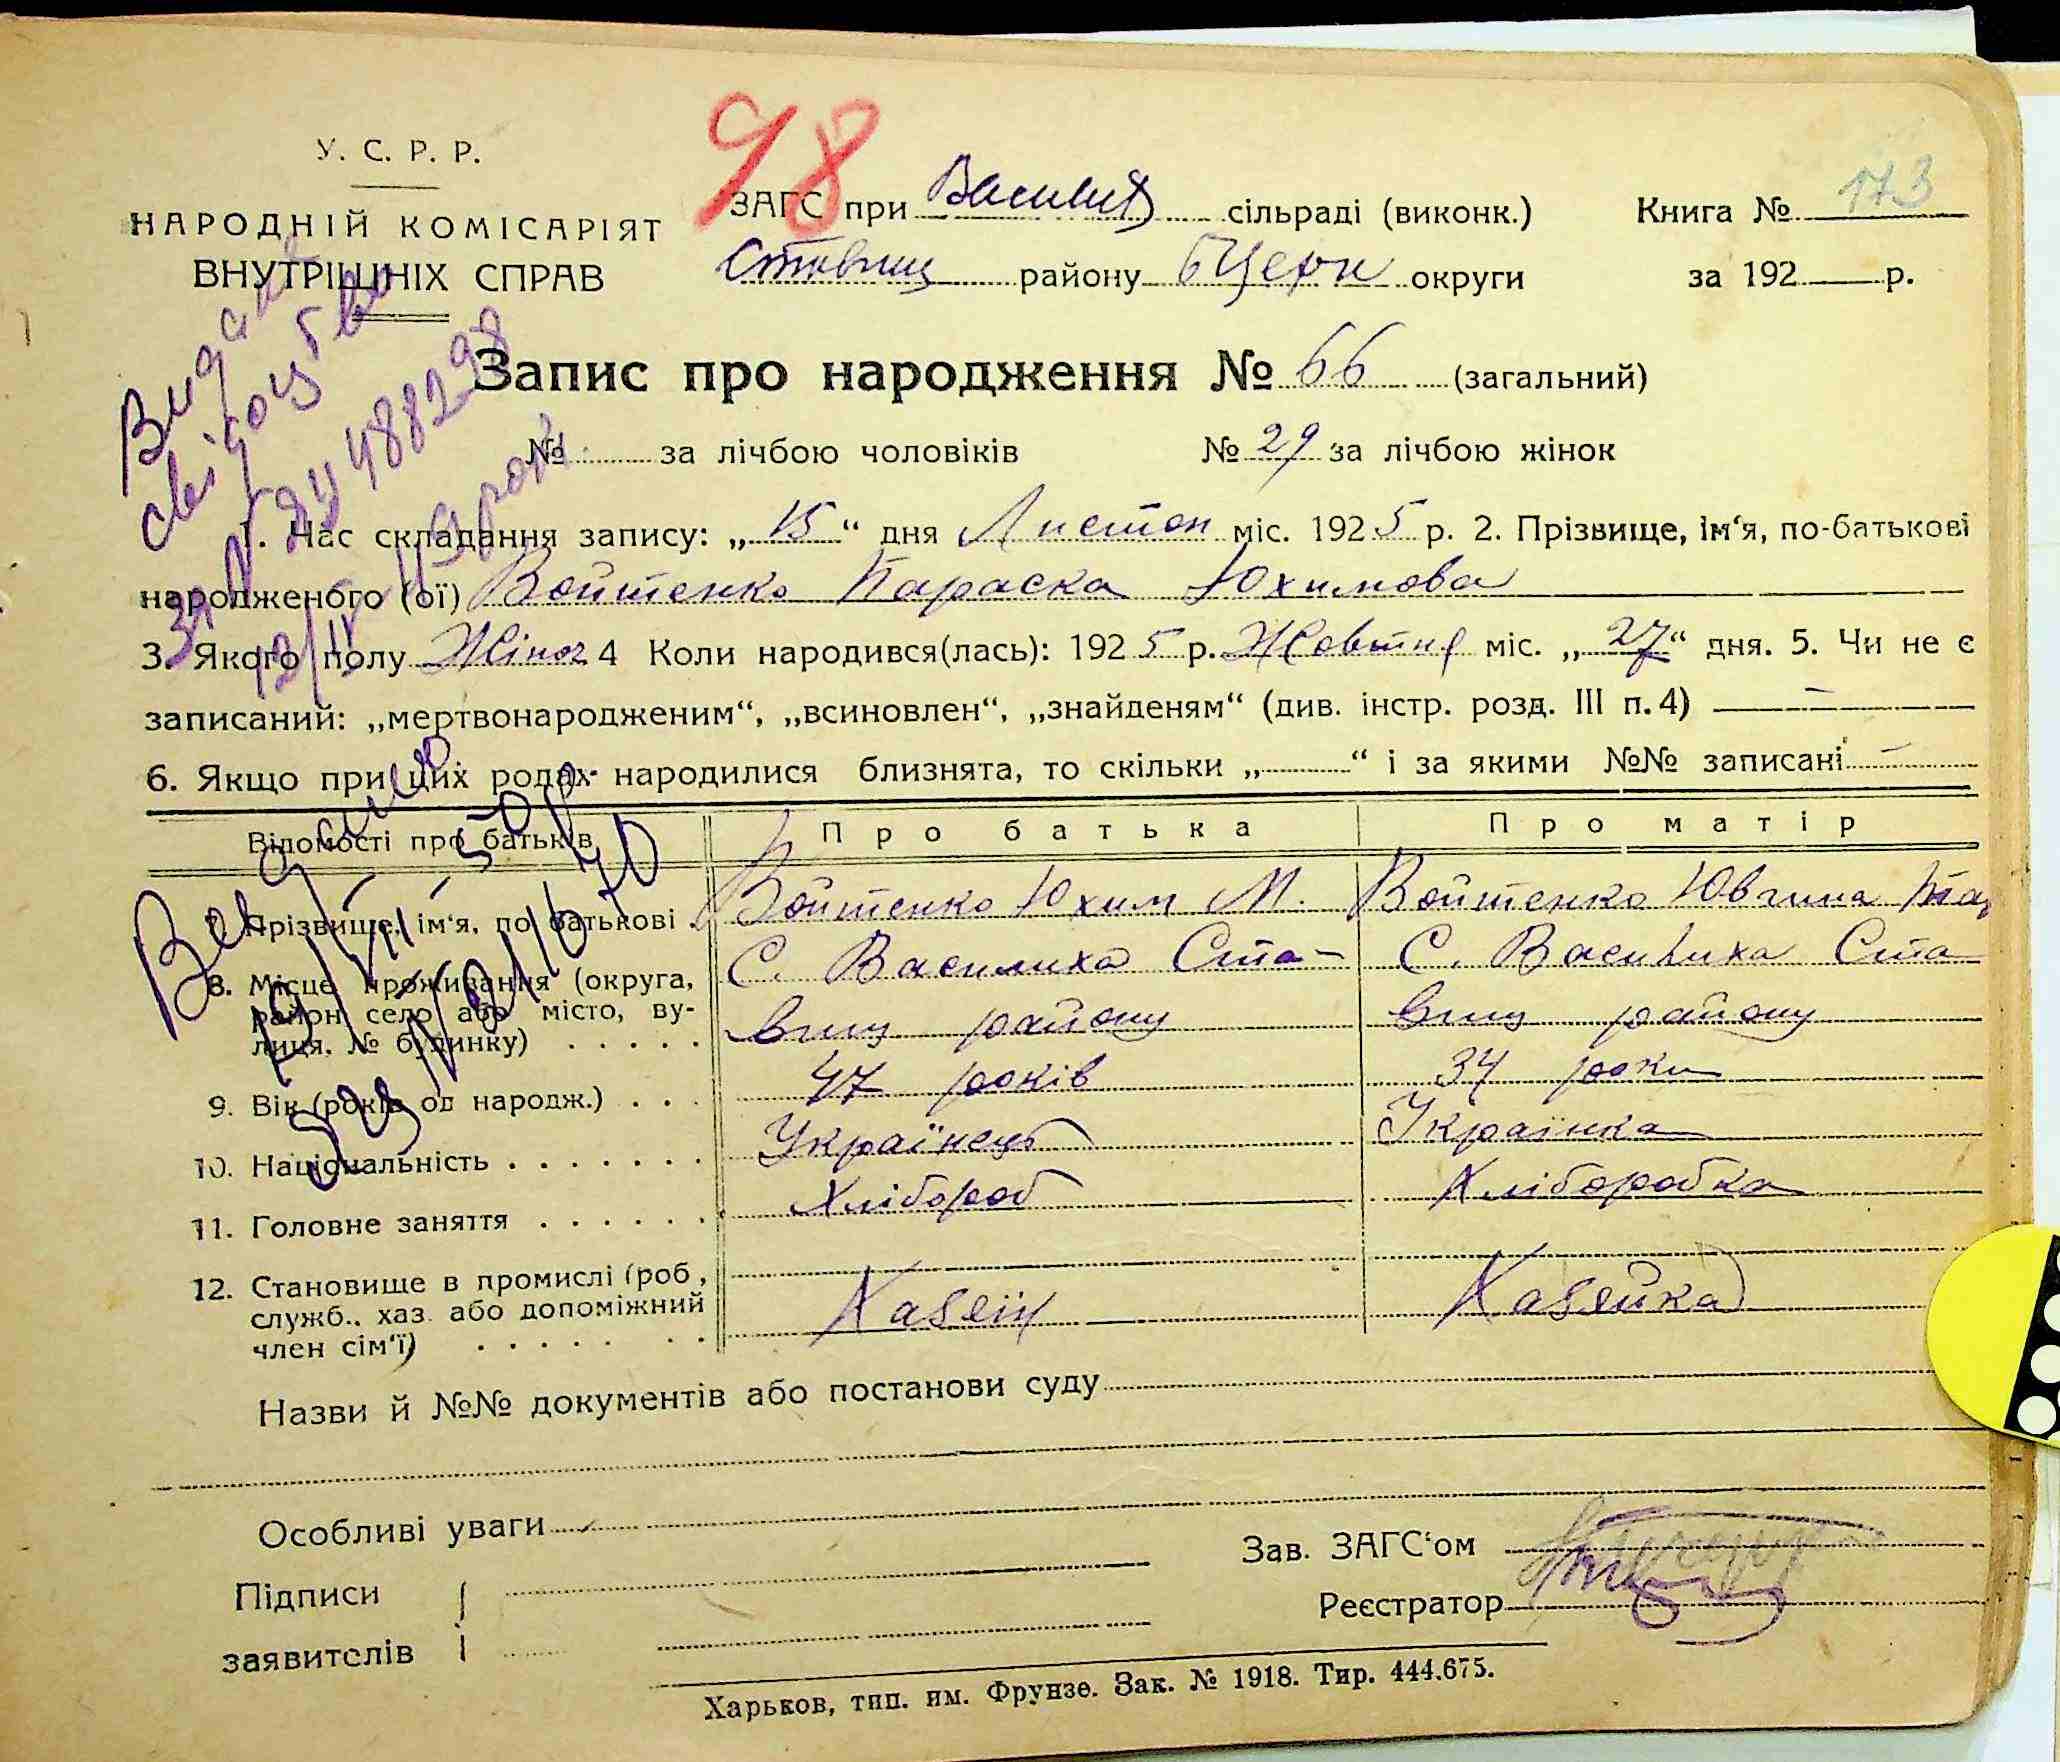 98
173
У. С. Р. Р.
НАРОДНІЙ КОМІСАРІЯТ
ВНУТРІШНІХ СПРАВ
ЗАГС при Василих сільраді (виконк.) Книга №
Ставищ району БЦерк округи за 192 р.
Запис про народження № 66 (загальний)
№ за лічбою чоловіків № 29 за лічбою жінок
1. Час складання запису: „15“ дня Листоп міс. 1925 р. 2. Прізвище, ім‘я, по-батькові
народженого (ої) Войтенко Параска Юхимова
3. Якого полу Жіноч 4 Коли народився(лась): 1925 р. Жовтня міс. „27“ дня. 5. Чи не є
записаний: „мертвонародженим“, „всиновлен“, „знайденям“ (див. інстр. розд. III п. 4) —
6. Якщо при цих родах народилися близнята, то скільки „ “ і за якими №№ записані —
Відомості про батьків Про батька Про матір
7. Прізвище, ім‘я, по батькові Войтенко Юхим М. Войтенко Ювгина
8. Місце проживання (округа, район село або місто, вулиця, № будинку)
С. Василиха Ста- С. Василиха Ста
вищ району вищ району
9. Вік (років од народж.) 47 років 34 роки
10. Національність Українець Українка
11. Головне заняття Хлібороб Хліборобка
12. Становище в промислі (роб, служб., хаз. або допоміжний член сім‘ї) Хазяїн Хазяйка
Назви й №№ документів або постанови суду
Особливі уваги
Зав. ЗАГС‘ом
Підписи
Реєстратор
заявителів
Харьков, тип. им. Фрунзе. Зак. № 1918. Тир. 444.675.
Видане
свідоцтво
488298
Видано